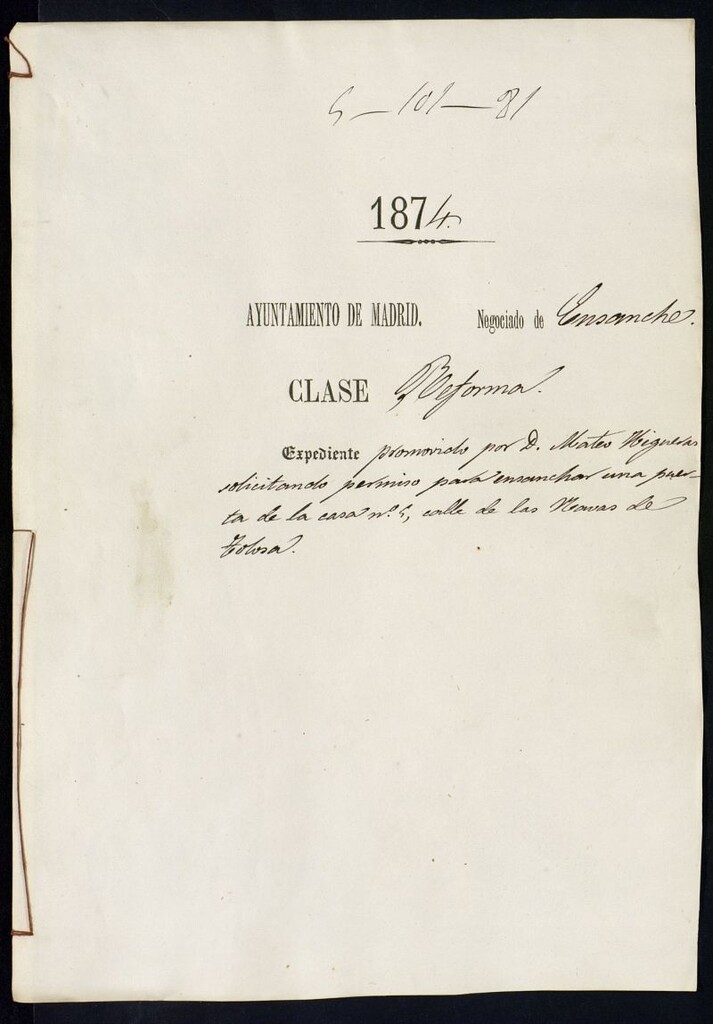 5-101-81
1874.
AYUNTAMIENTO DE MADRID. Negociado de Ensanche.
CLASE Reforma.
Expediente promovido por D. Mateo Higueras
solicitando permiso para ensanchar una puer-
ta de la casa nº 5, calle de las Navas de
Tolosa.